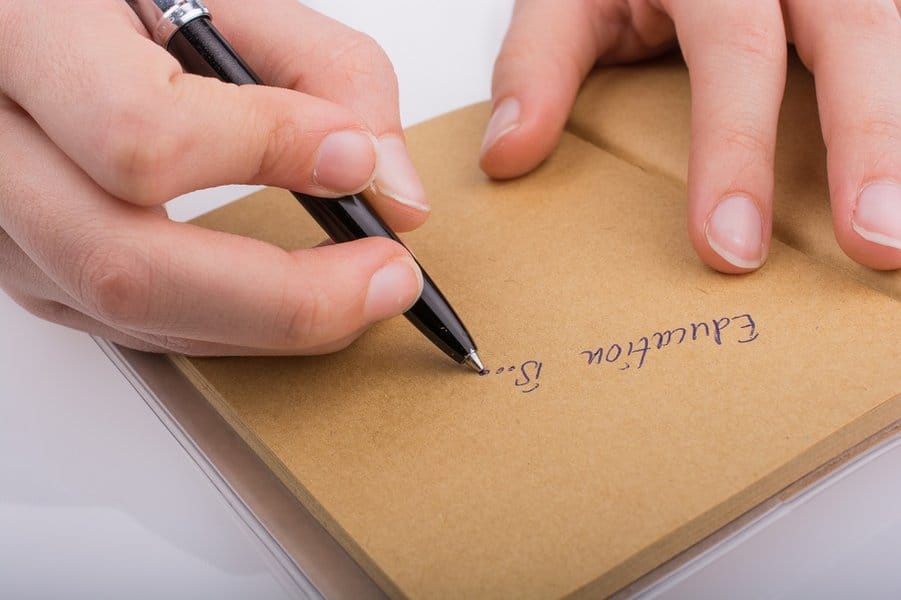 Education is...